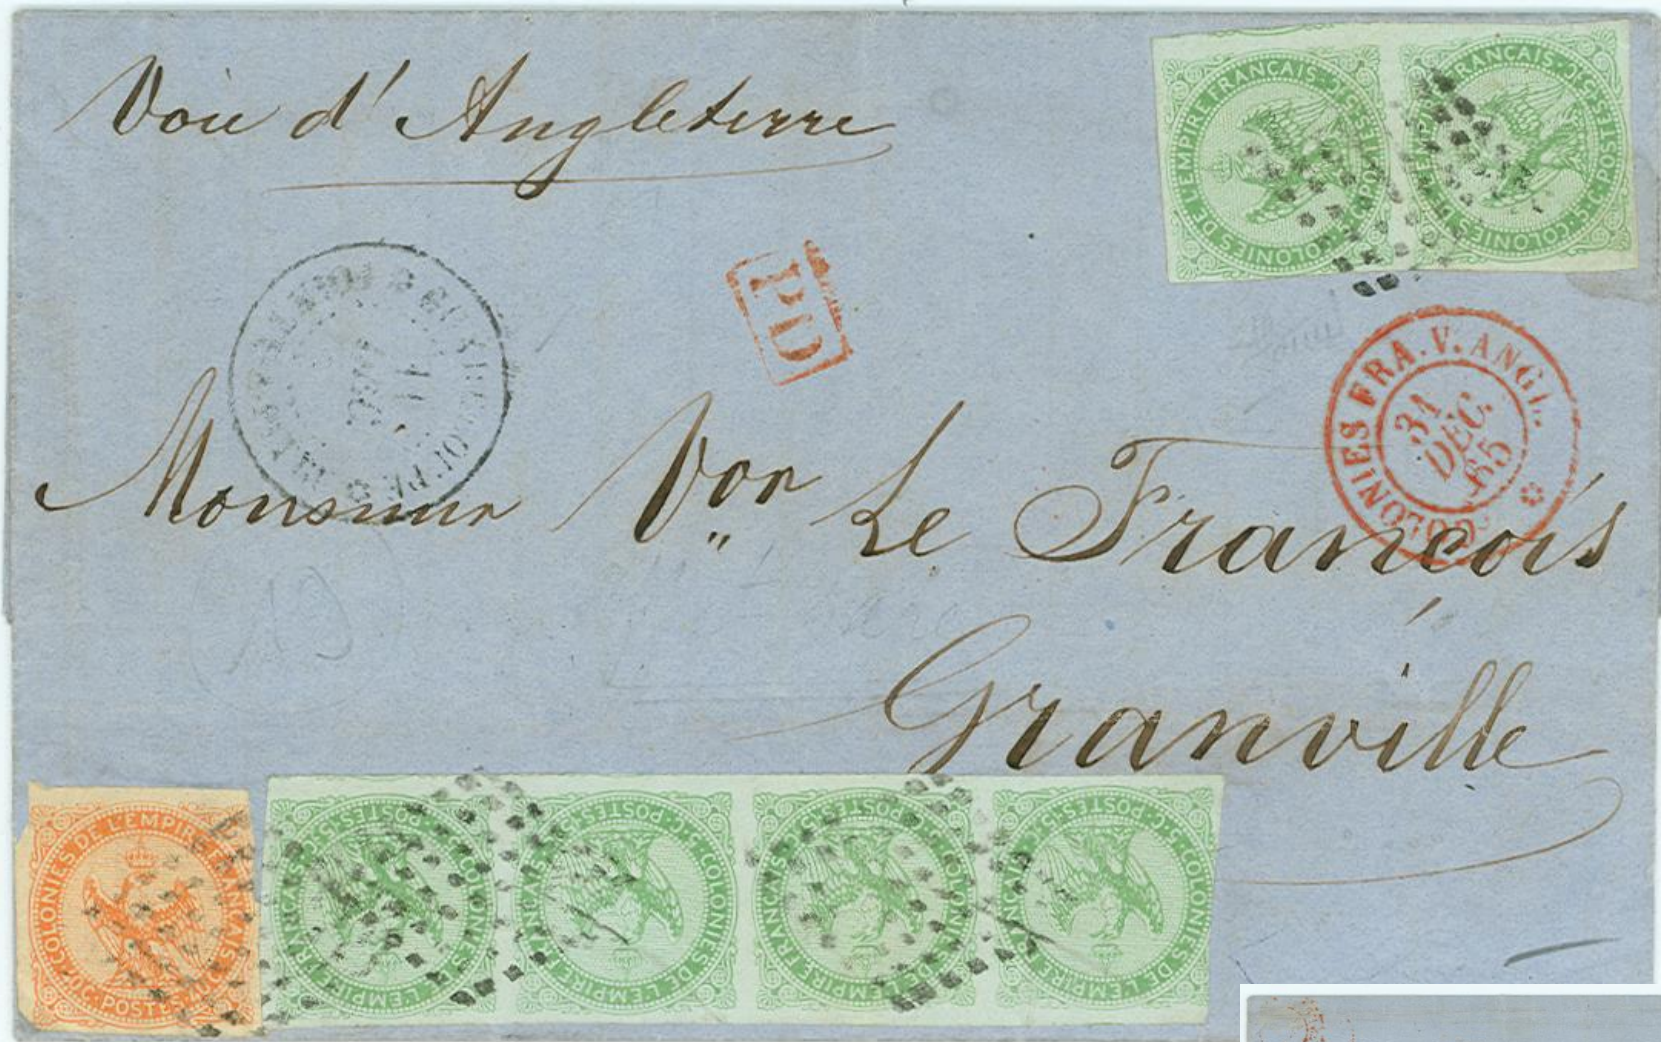 Voie d'Angleterre
COLONIES DE L'EMPIRE FRANÇAIS · 5 C · POSTES · 5 C ·
COLONIES DE L'EMPIRE FRANÇAIS · 5 C · POSTES · 5 C ·
PD
11
DEC
COLONIES FRA. V. ANGL.
31
DÉC.
65
Monsieur Vor Le François
Granville
COLONIES DE L'EMPIRE FRANÇAIS · 40 C · POSTES · 40 C ·
COLONIES DE L'EMPIRE FRANÇAIS · 5 C · POSTES · 5 C ·
COLONIES DE L'EMPIRE FRANÇAIS · 5 C · POSTES · 5 C ·
COLONIES DE L'EMPIRE FRANÇAIS · 5 C · POSTES · 5 C ·
COLONIES DE L'EMPIRE FRANÇAIS · 5 C · POSTES · 5 C ·